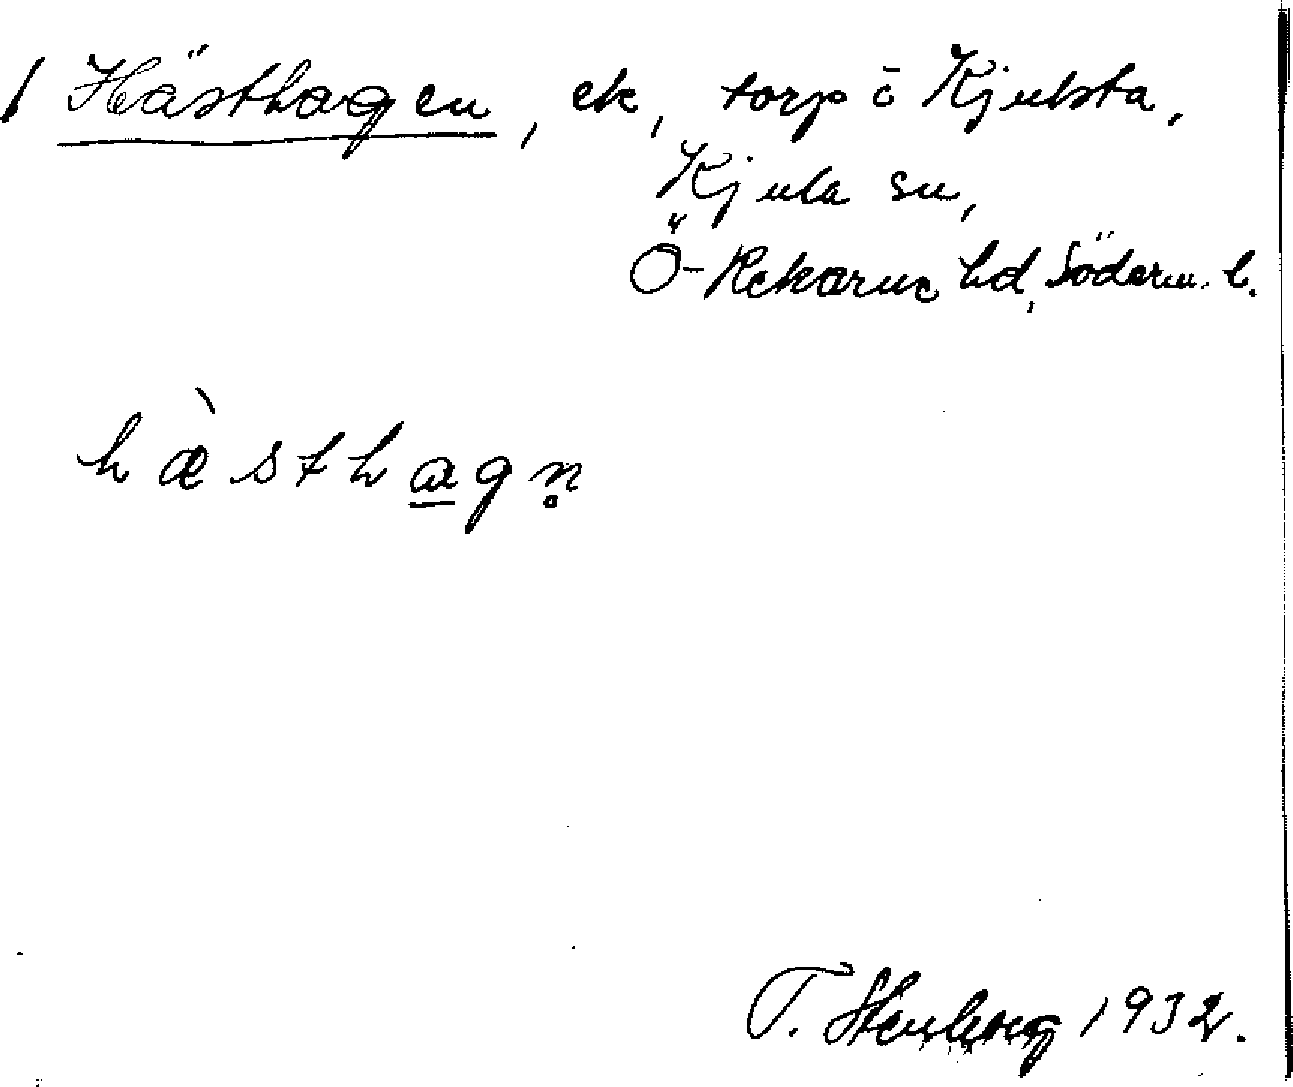 / Hästhagen, ek, torp å Kjulsta,
Kjula sn,
Ö-Rekarne hd, Söderm. l.
hæ̀sthagn̥
T. Stenberg 1932.